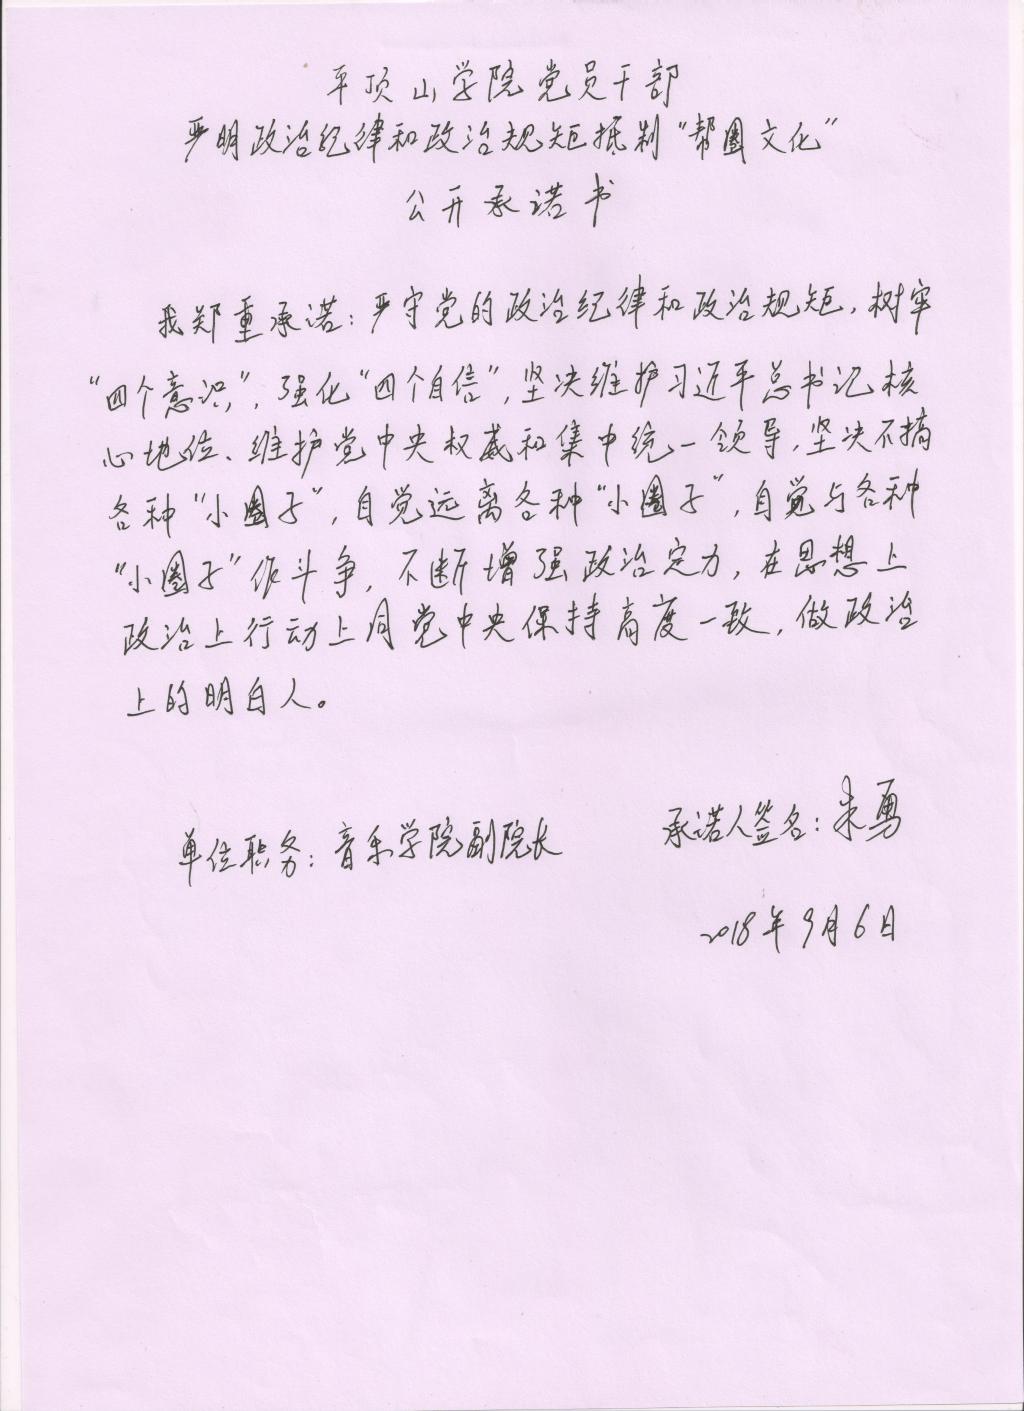 平顶山学院党员干部
严明政治纪律和政治规矩抵制“帮圈文化”
公开承诺书
我郑重承诺：严守党的政治纪律和政治规矩，树牢
“四个意识”，强化“四个自信”，坚决维护习近平总书记核
心地位、维护党中央权威和集中统一领导，坚决不搞
各种“小圈子”，自觉远离各种“小圈子”，自觉与各种
“小圈子”作斗争，不断增强政治定力，在思想上
政治上行动上同党中央保持高度一致，做政治
上的明白人。
单位职务：音乐学院副院长 承诺人签名：朱勇
2018年9月6日